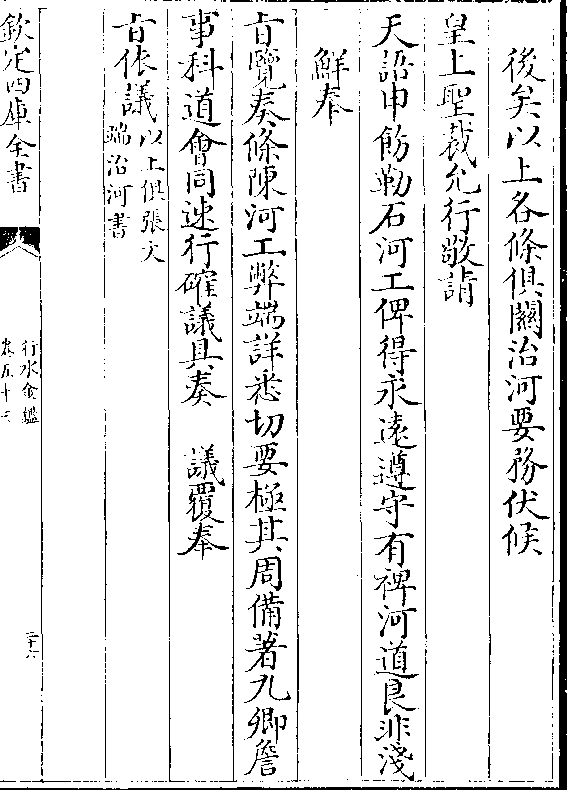 後矣以上各條俱關治河要務伏候
皇上聖裁允行敬請
天語申飭勒石河工俾得永遠遵守有裨河道良非淺
鮮奉
旨覽奏條陳河工弊端詳悉切要極其周備著九卿詹
事科道會同速行確議具奏　議覆奉
旨依議以上俱張文
端治河書
欽定四庫全書
行水金鑑
卷五十三
二十六